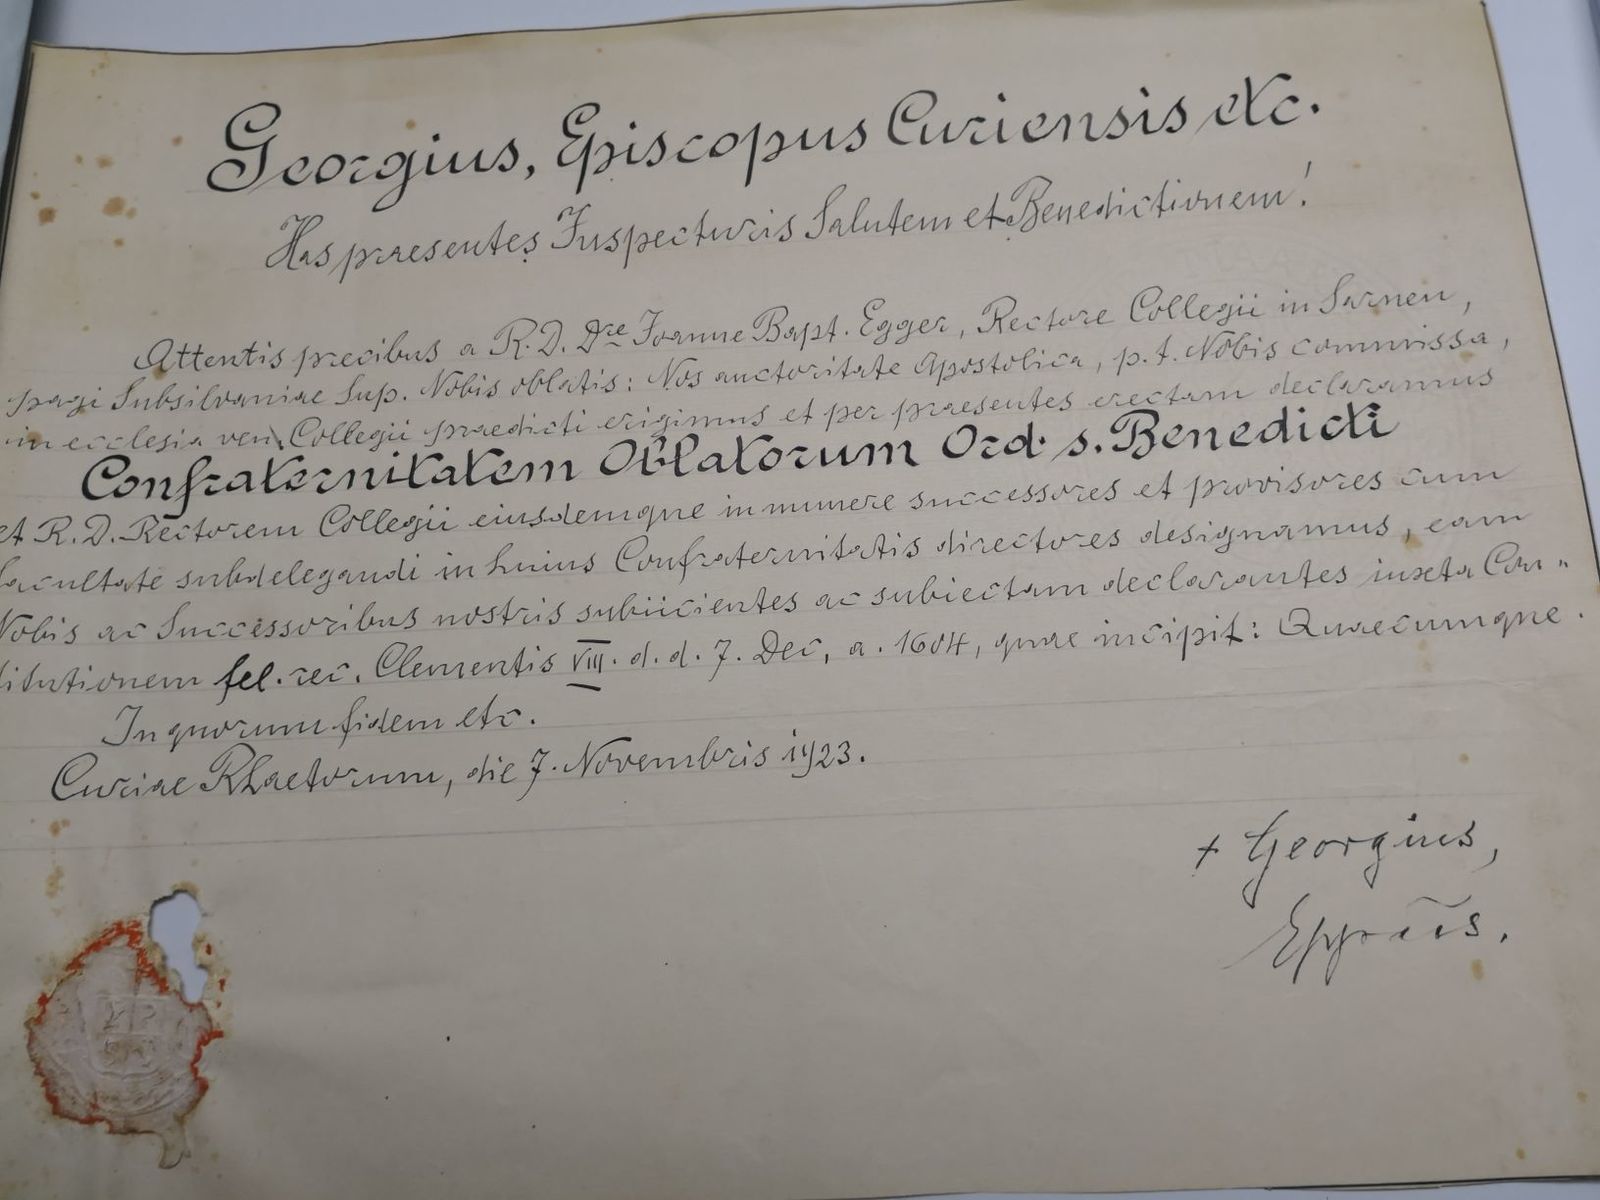 Georgius, Episcopus Curiensis etc.
Has praesentes Inspecturis Salutem et Benedictionem!
Attentis precibus a R. D. Dre Ioanne Bapt. Egger, Rectore Collegii in Sarnen,
pagi Subsilvaniae Sup. Nobis oblatis: Nos auctoritate Apostolica, p. t. Nobis commissa,
in ecclesia ven. Collegii praedicti erigimus et per praesentes erectam declaramus
Confraternitatem Oblatorum Ord. s. Benedicti
et R. D. Rectorem Collegii eiusdemque in munere successores et provisores cum
facultate subdelegandi in huius Confraternitatis directores designamus, eam
Nobis ac Successoribus nostris subiicientes ac subiectam declarantes iuxta Con„
titutionem fel. rec. Clementis VIII. d. d. 7. Dec, a. 1604, quae incipit: Quaecumque.
In quorum fidem etc.
Curiae Rhaetorum, die 7. Novembris 1923.
+ Georgius,
Eppũs.